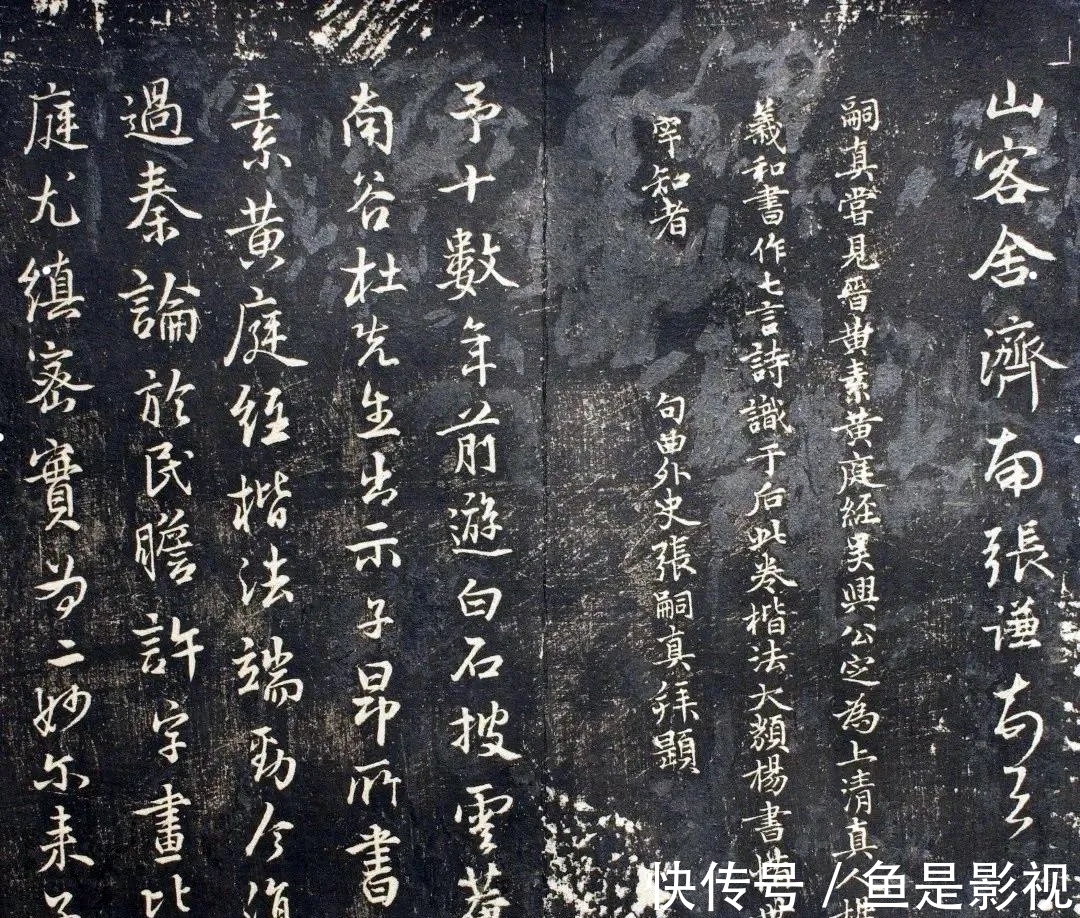 山客舍濟南張謙
嗣真嘗見晉黃素黃庭経吴興公定為上清真人楊
羲和書作七言詩識于后此卷楷法大類楊書惜世
罕知者
句曲外史張嗣真拜題
予十數年前遊白石披雲菴
南谷杜先生出示子昂所書
素黃庭經楷法端勁今復
過秦論於民瞻許字畫比
庭尤縝密實為二妙尔来子
快传号 / 鱼是影视